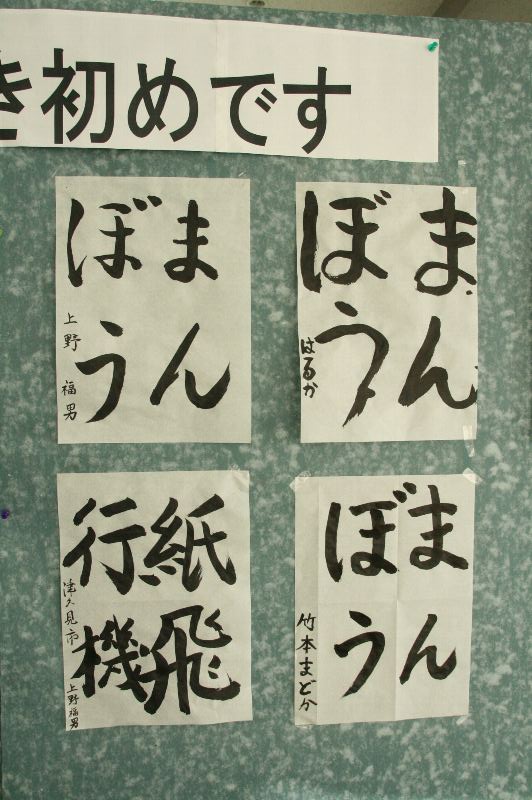 き初めです
まん
ぼう
上野 福男
まん
ぼう
はるか
紙飛
行機
津久見市 上野福男
まん
ぼう
竹本まどか